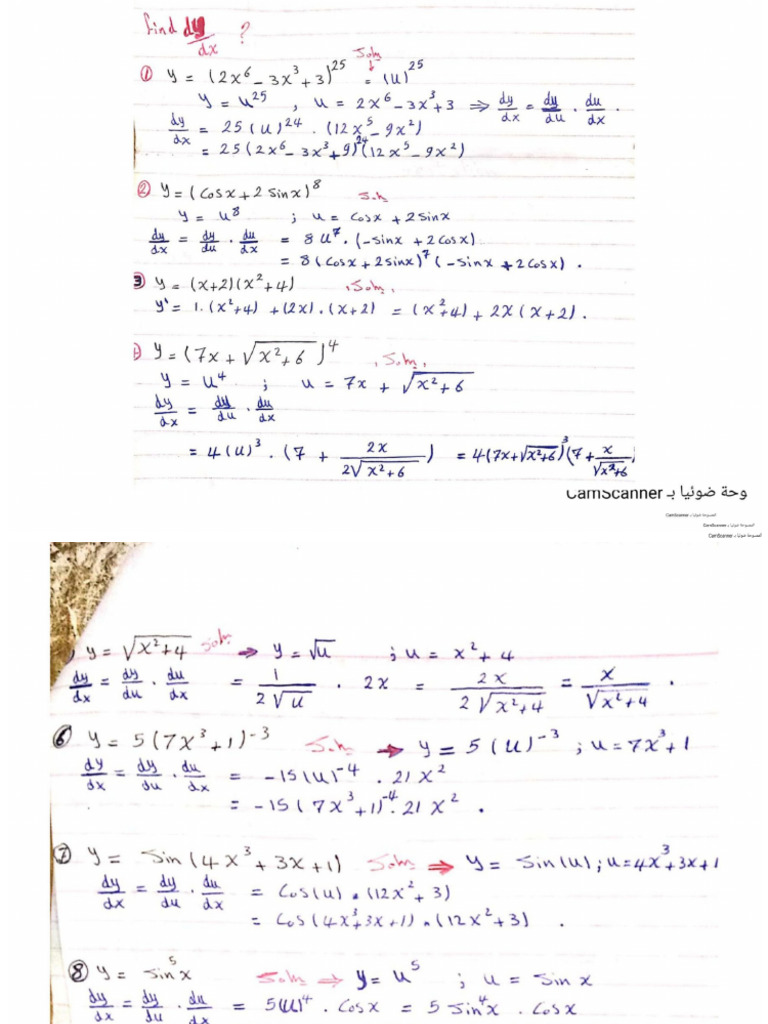 find dy/dx ?
① y = (2x⁶ - 3x³ + 3)²⁵ Soln ↓ = (u)²⁵
y = u²⁵ , u = 2x⁶ - 3x³ + 3 ⇒ dy/dx = dy/du . du/dx .
dy/dx = 25 (u)²⁴ . (12x⁵ - 9x²)
= 25 (2x⁶ - 3x³ + 9)²⁴ (12x⁵ - 9x²)
② y = (cosx + 2 sinx)⁸ Soln
y = u⁸ ; u = cosx + 2sinx
dy/dx = dy/du . du/dx = 8 u⁷ . (-sinx + 2cosx)
= 8 (cosx + 2sinx)⁷ (-sinx + 2cosx) .
3 y = (x+2)(x²+4) . Soln .
y' = 1.(x²+4) + (2x).(x+2) = (x²+4) + 2x(x+2) .
y = (7x + √(x²+6) )⁴ . Soln .
y = u⁴ ; u = 7x + √(x²+6)
dy/dx = dy/du . du/dx
= 4(u)³ . (7 + 2x/(2√(x²+6)) ) = 4(7x+√(x²+6))³(7 + x/√(x²+6)
وحة ضوئيا بـ CamScanner
الممسوحة ضوئيا بـ CamScanner
الممسوحة ضوئيا بـ CamScanner
الممسوحة ضوئيا بـ CamScanner
) y = √(x²+4) Soln ⇒ y = √u ; u = x² + 4
dy/dx = dy/du . du/dx = 1/(2√u) . 2x = 2x/(2√(x²+4)) = x/√(x²+4) .
⑥ y = 5(7x³+1)⁻³ Soln → y = 5(u)⁻³ ; u = 7x³+1
dy/dx = dy/du . du/dx = -15(u)⁻⁴ . 21x²
= -15(7x³+1)⁻⁴ . 21x² .
⑦ y = sin(4x³ + 3x + 1) Soln ⇒ y = sin(u) ; u = 4x³+3x+1
dy/dx = dy/du . du/dx = cos(u) . (12x² + 3)
= cos(4x³+3x+1) . (12x²+3) .
⑧ y = sin⁵x Soln ⇒ y = u⁵ ; u = sin x
dy/dx = dy/du . du/dx = 5(u)⁴ . cosx = 5 sin⁴x . cosx